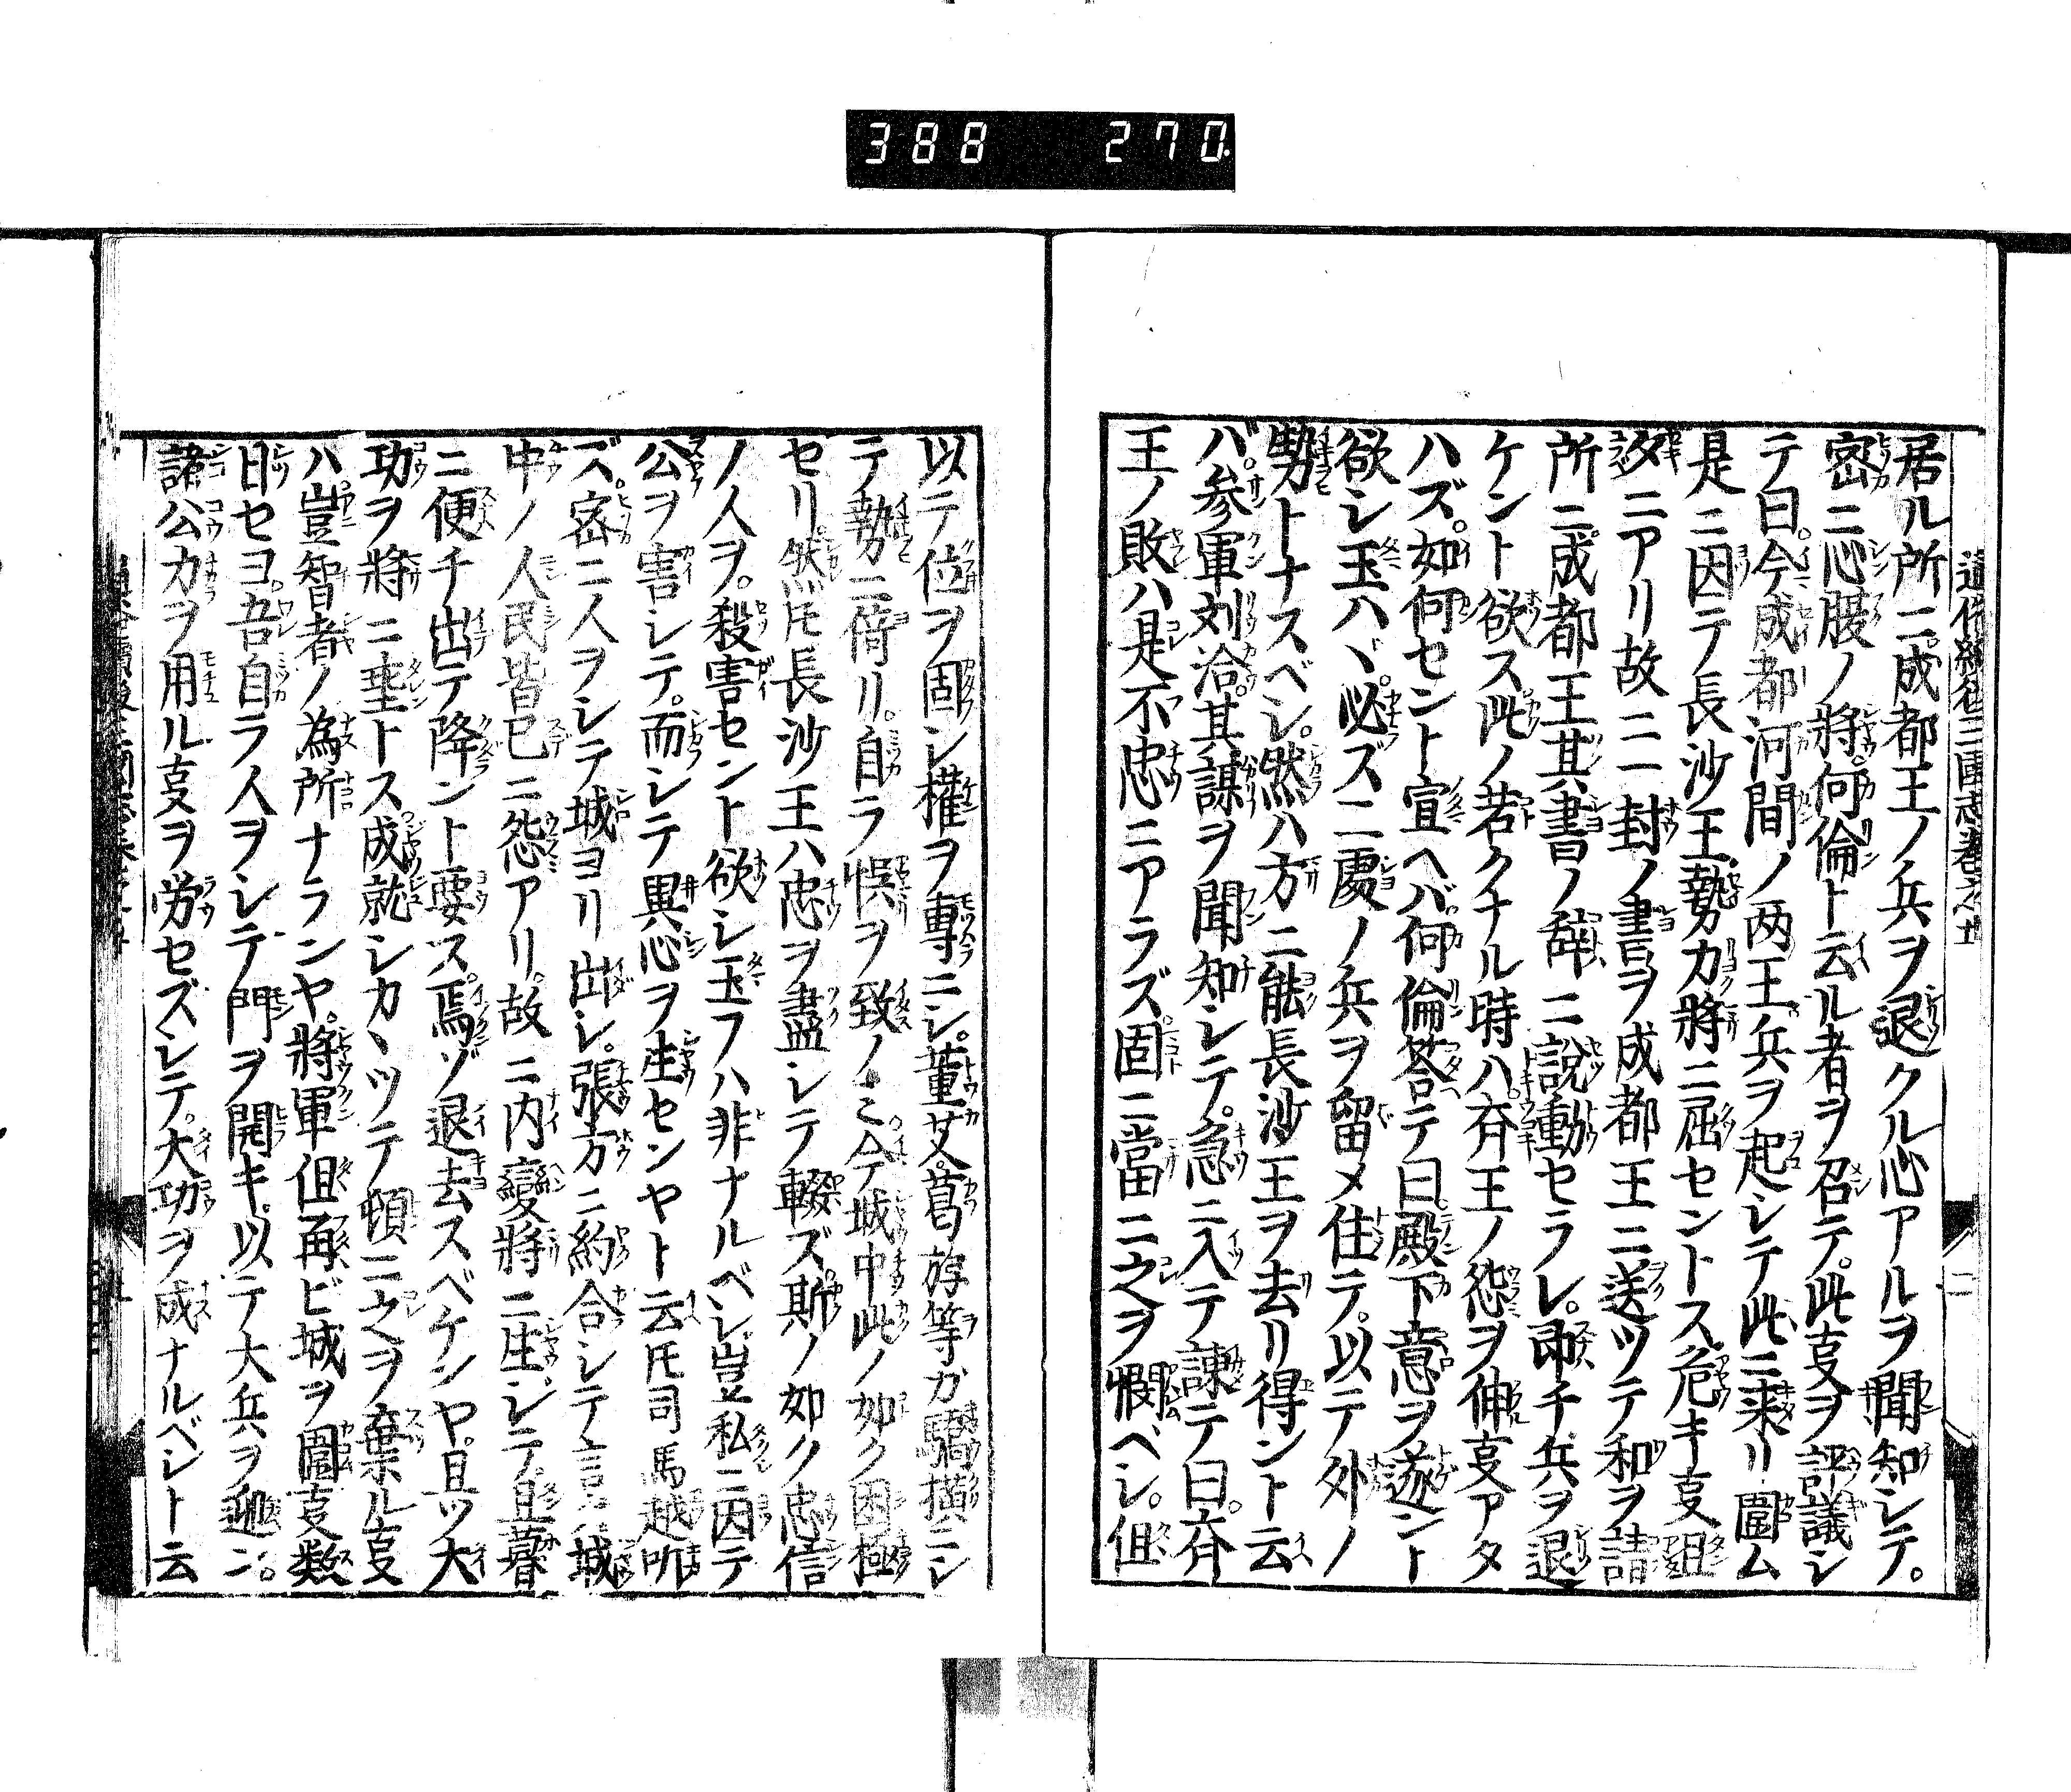 388 270
通俗續後三國志卷之十
居ル所ニ成都王ノ兵ヲ退クル心アルヲ聞知シテ。
密ニ心腹ノ將。何倫ト云ル者ヲ召テ。此叓ヲ評議シ
テ曰。今成都河間ノ両王。兵ヲ起シテ此ニ来リ圍ム
是ニ因テ長沙王勢力將ニ屈セントス。危キ叓旦
夕ニアリ故ニ一封ノ書ヲ成都王ニ送ツテ和ヲ請
所ニ成都王其書ノ辞ニ説動セラレ。即チ兵ヲ退
ケント欲ス此ノ若クナル時ハ。斉王ノ怨ヲ伸叓アタ
ハズ。如何セント宣ヘバ何倫答テ曰。殿下意ヲ遂ント
欲シ玉ハヾ。必ズ二處ノ兵ヲ留メ住テ。以テ外ノ
勢トナスベシ。然ハ方ニ能長沙王ヲ去リ得ント云
バ。参軍刘洽。其謀ヲ聞知シテ。急ニ入テ諫テ曰。斉
王ノ敗ハ是不忠ニアラズ固ニ當ニ之ヲ憫ベシ。但
以テ位ヲ固シ權ヲ專ニシ。董艾。葛旟等ガ驕横ニシ
テ勢ニ倚リ。自ラ悞ヲ致ノミ。今城中此ノ如ク困極
セリ。然𪜈長沙王ハ忠ヲ盡シテ輟ズ斯ノ如ク忠信
ノ人ヲ。殺害セント欲シ玉フハ非ナルベシ。豈私ニ因テ
公ヲ害シテ。而シテ異心ヲ生センヤト云𪜈司馬越听
ズ。密ニ人ヲシテ城ヨリ出シ。張方ニ約合シテ言。城
中ノ人民皆已ニ怨アリ。故ニ内變將ニ生ジテ。旦暮
ニ便チ出テ降ント要ス。焉ゾ退去スベケンヤ。且ツ大
功ヲ將ニ埀トス。成就シカヽツテ頓ニ之ヲ棄ル叓
ハ。豈智者ノ為所ナランヤ。將軍但再ビ城ヲ圍叓数
日セヨ。吾自ラ人ヲシテ門ヲ開キ。以テ大兵ヲ迎ン。
諸公力ヲ用ル叓ヲ労セズシテ。大功ヲ成ナルベシト云